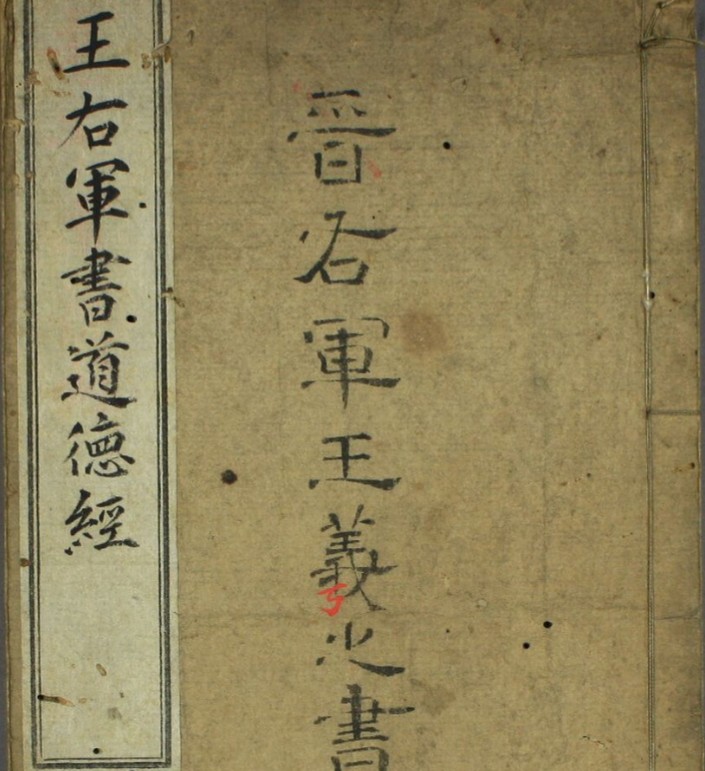 晋右軍王羲之書
王右軍書道德經